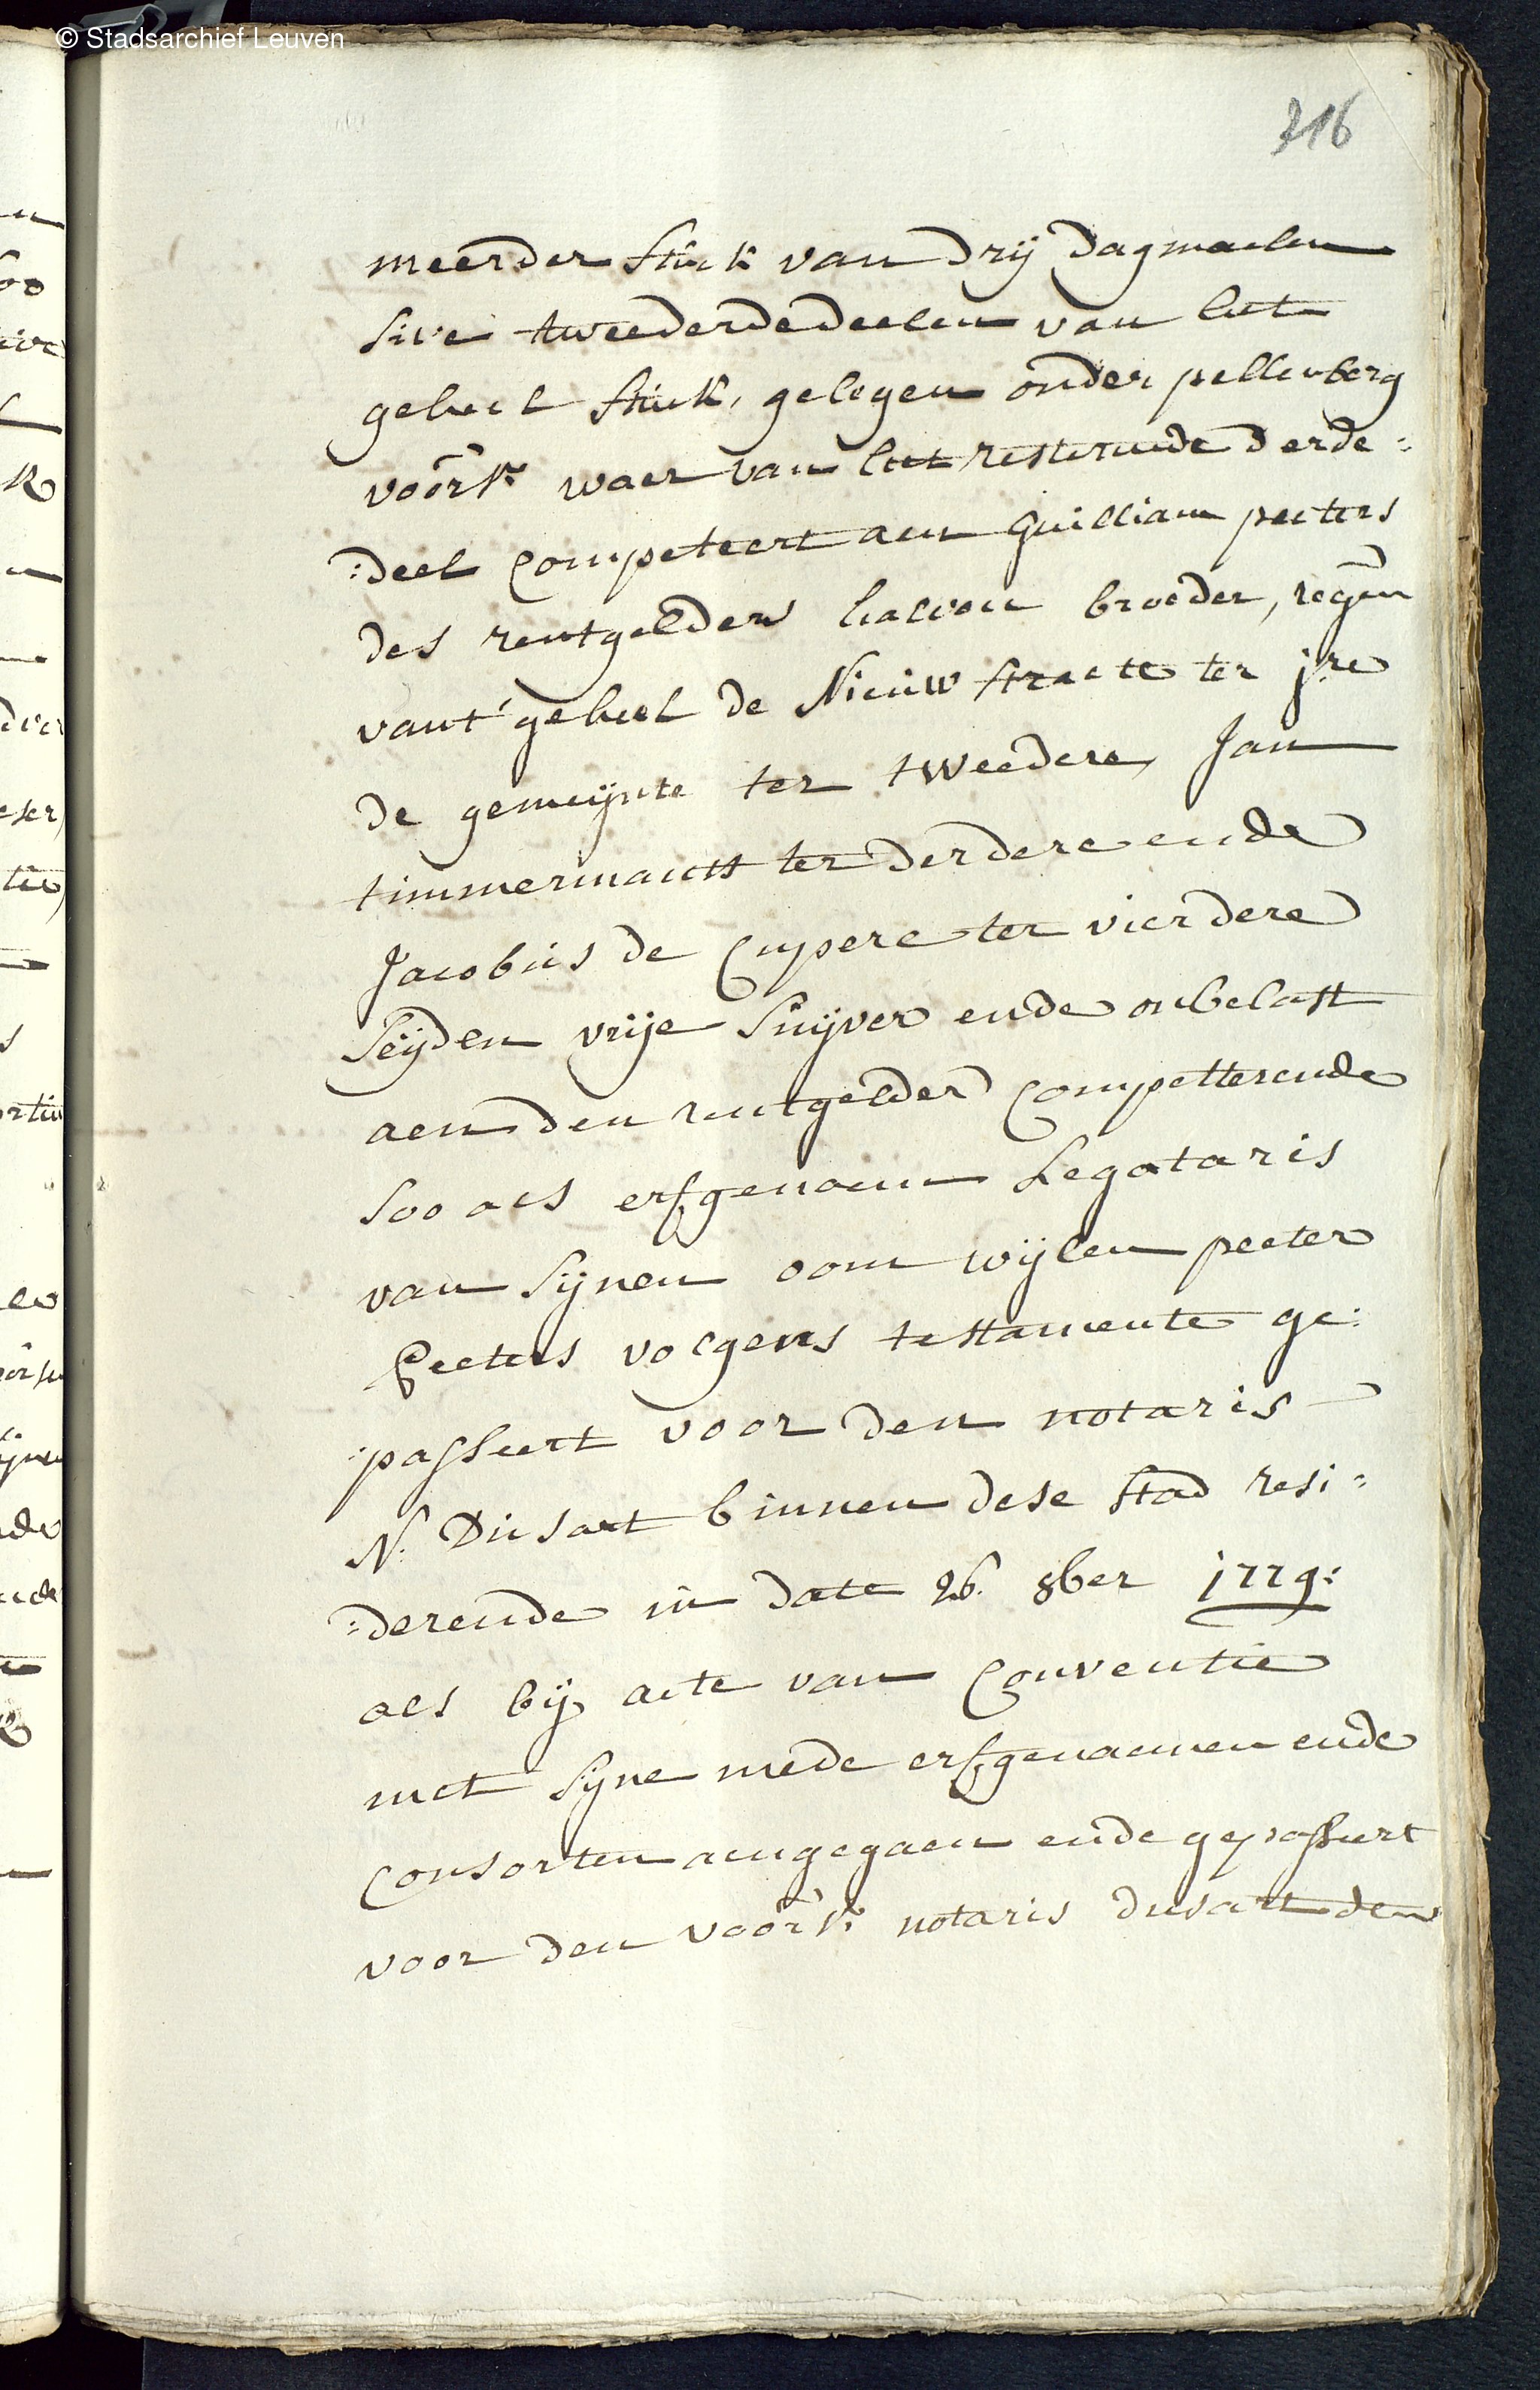 © Stadsarchief Leuven
316
meerder stuck van drij dagmaelen
sive tweederdedeelen van het
geheel stuck, gelegen onder pellenberg
voors: waer van het resterende derde=
:deel competeert aen Guilliam peeters
des rentgelders halven broeder, regen
vant' geheel de Nieuw straete ter j:re
de gemeijnte ter tweedere, Jan
timmermans ter derdere ende
Jacobus de Cupere ter vierdere
seijden vrije suijver ende onbelast
aen den rentgelder competterende
soo als erfgenaem Legataris
van sijnen oom wijlen peeter
Peeters volgens testamente ge:
:passeert voor den notaris
N: Dusart binnen dese stad resi=
:derende in date 26. 8ber 1779:
als bij acte van Conventie
met sijne mede erfgenaemen ende
consorten aengegaen ende gepasseert
voor den voors: notaris dusart den